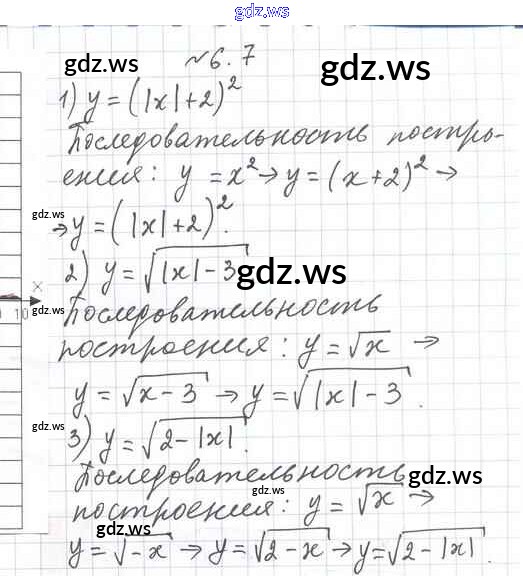 gdz.ws
№6.7
gdz.ws gdz.ws
1) y = (|x|+2)²
Последовательность постро-
ения: y = x² → y = (x+2)² →
gdz.ws
→ y = (|x|+2)².
2) y = √|x|-3 gdz.ws
x
0 10
gdz.ws
Последовательность
построения: y = √x →
y = √x-3 → y = √|x|-3.
gdz.ws
3) y = √2-|x|.
Последовательность gdz.ws
gdz.ws
построения: y = √x →
gdz.ws gdz.ws
y = √-x → y = √2-x → y = √2-|x|.